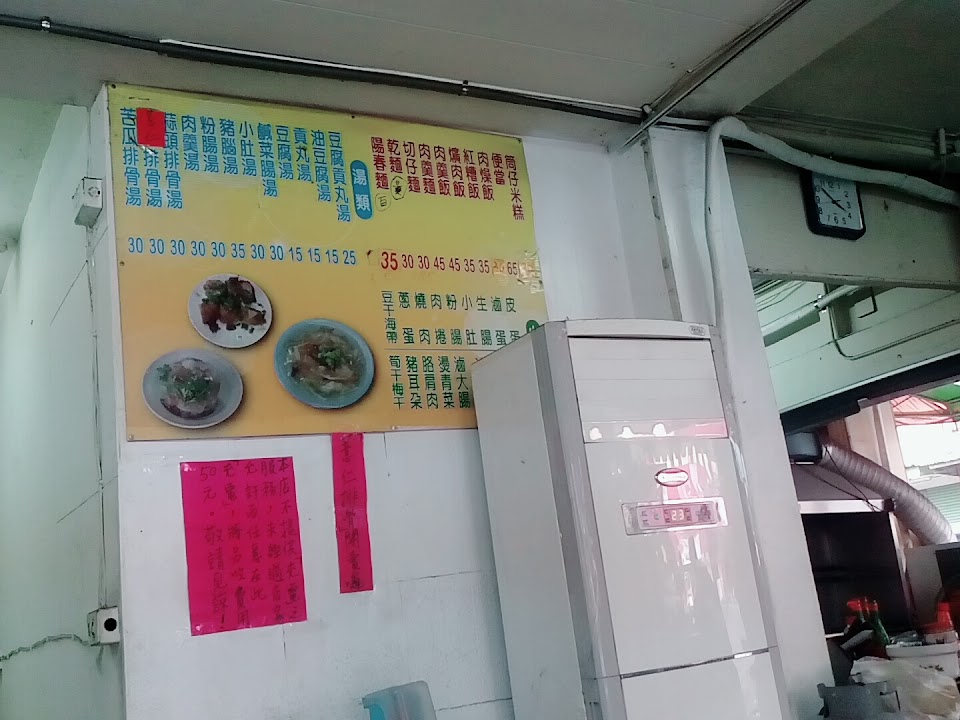 筒仔米糕
便當
肉燥飯
紅糟飯
爌肉飯
肉羹飯
肉羹麵
切仔麵
乾麵
陽春麵
35 30 30 45 45 35 35 65
湯類
豆腐貢丸湯
油豆腐湯
貢丸湯
豆腐湯
鹹菜腸湯
小肚湯
豬腦湯
粉腸湯
肉羹湯
蒜頭排骨湯
排骨湯
苦瓜排骨湯
30 30 30 30 30 35 30 30 15 15 15 25
皮蛋
滷蛋
生腸
小肚
粉腸
肉捲
燒肉
蔥蛋
豆干海帶
滷大腸
燙青菜
胳肩肉
豬耳朵
筍干梅干
薏仁排骨開賣
本店不提供免費
服務,未超過百
元 任意在此
50元,敬請見諒!
23
12